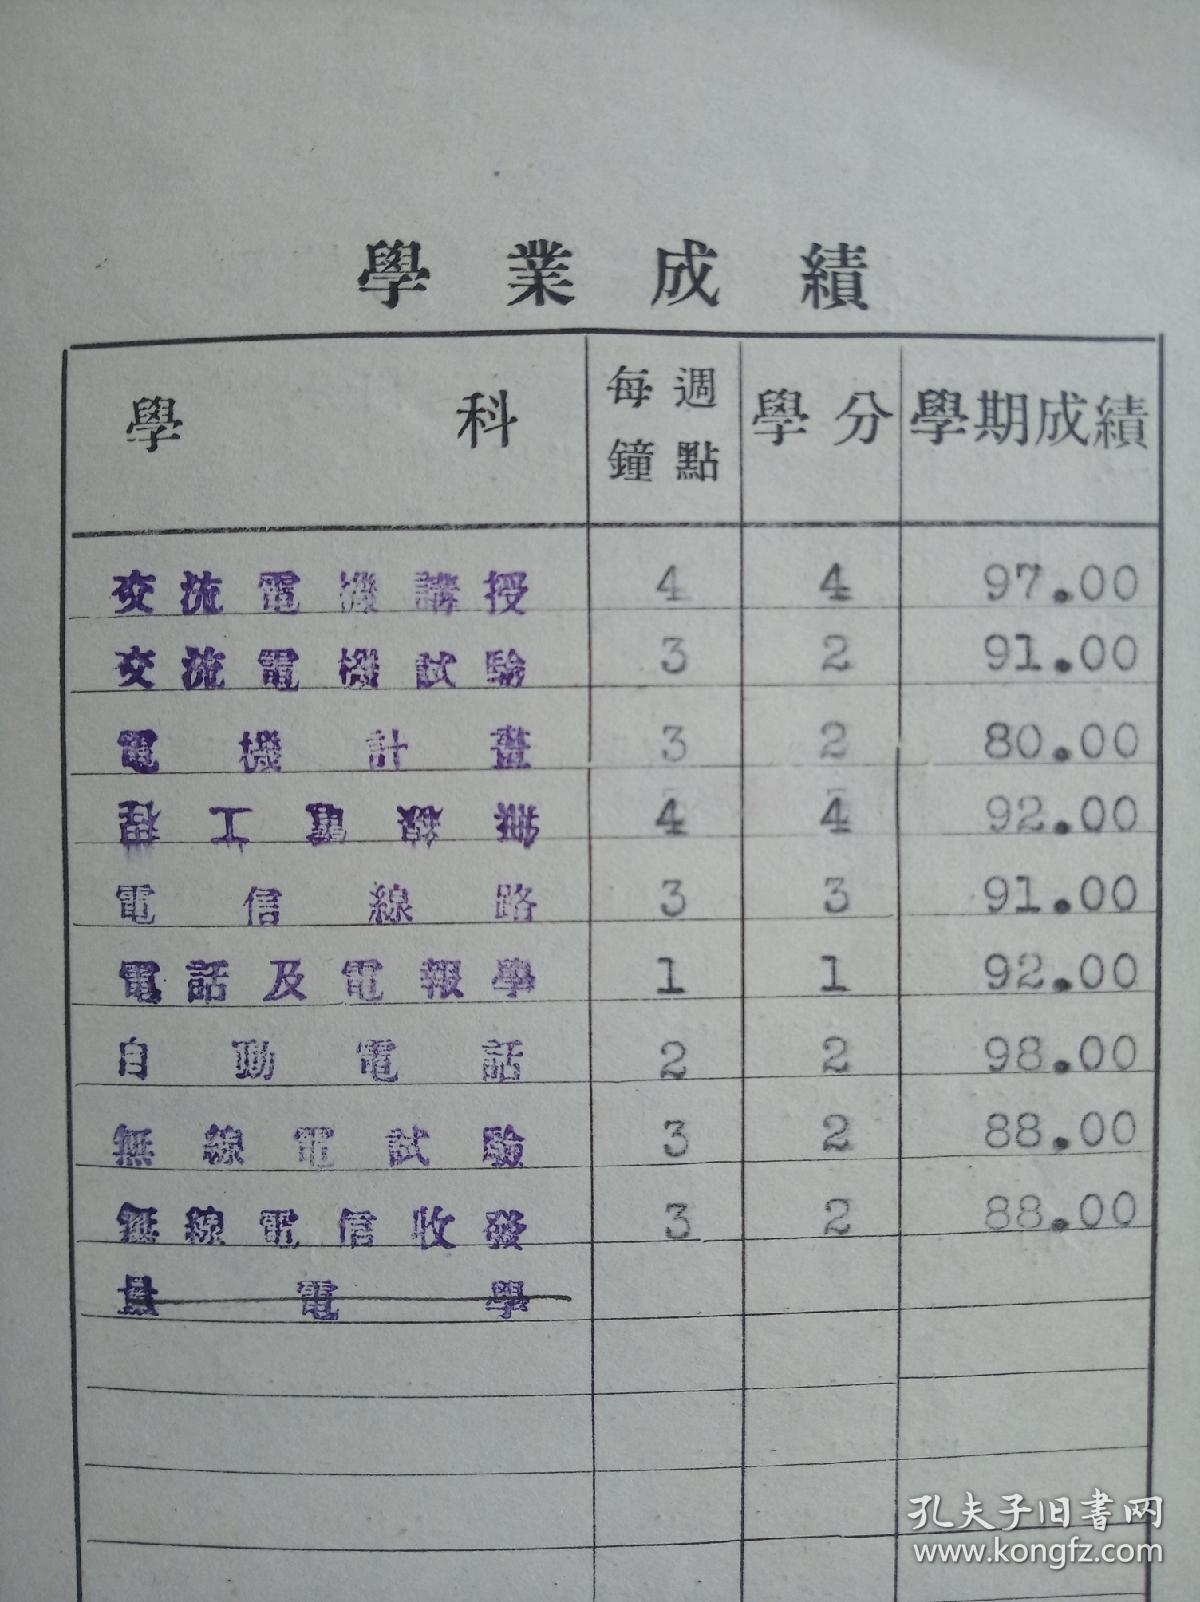 學業成績
學科 每週鐘點 學分 學期成績
交流電機講授 4 4 97.00
交流電機試驗 3 2 91.00
電機計畫 3 2 80.00
無線電工程 4 4 92.00
電信線路 3 3 91.00
電話及電報學 1 1 92.00
自動電話 2 2 98.00
無線電試驗 3 2 88.00
無線電信收發 3 2 88.00
量電學
孔夫子旧书网
www.kongfz.com